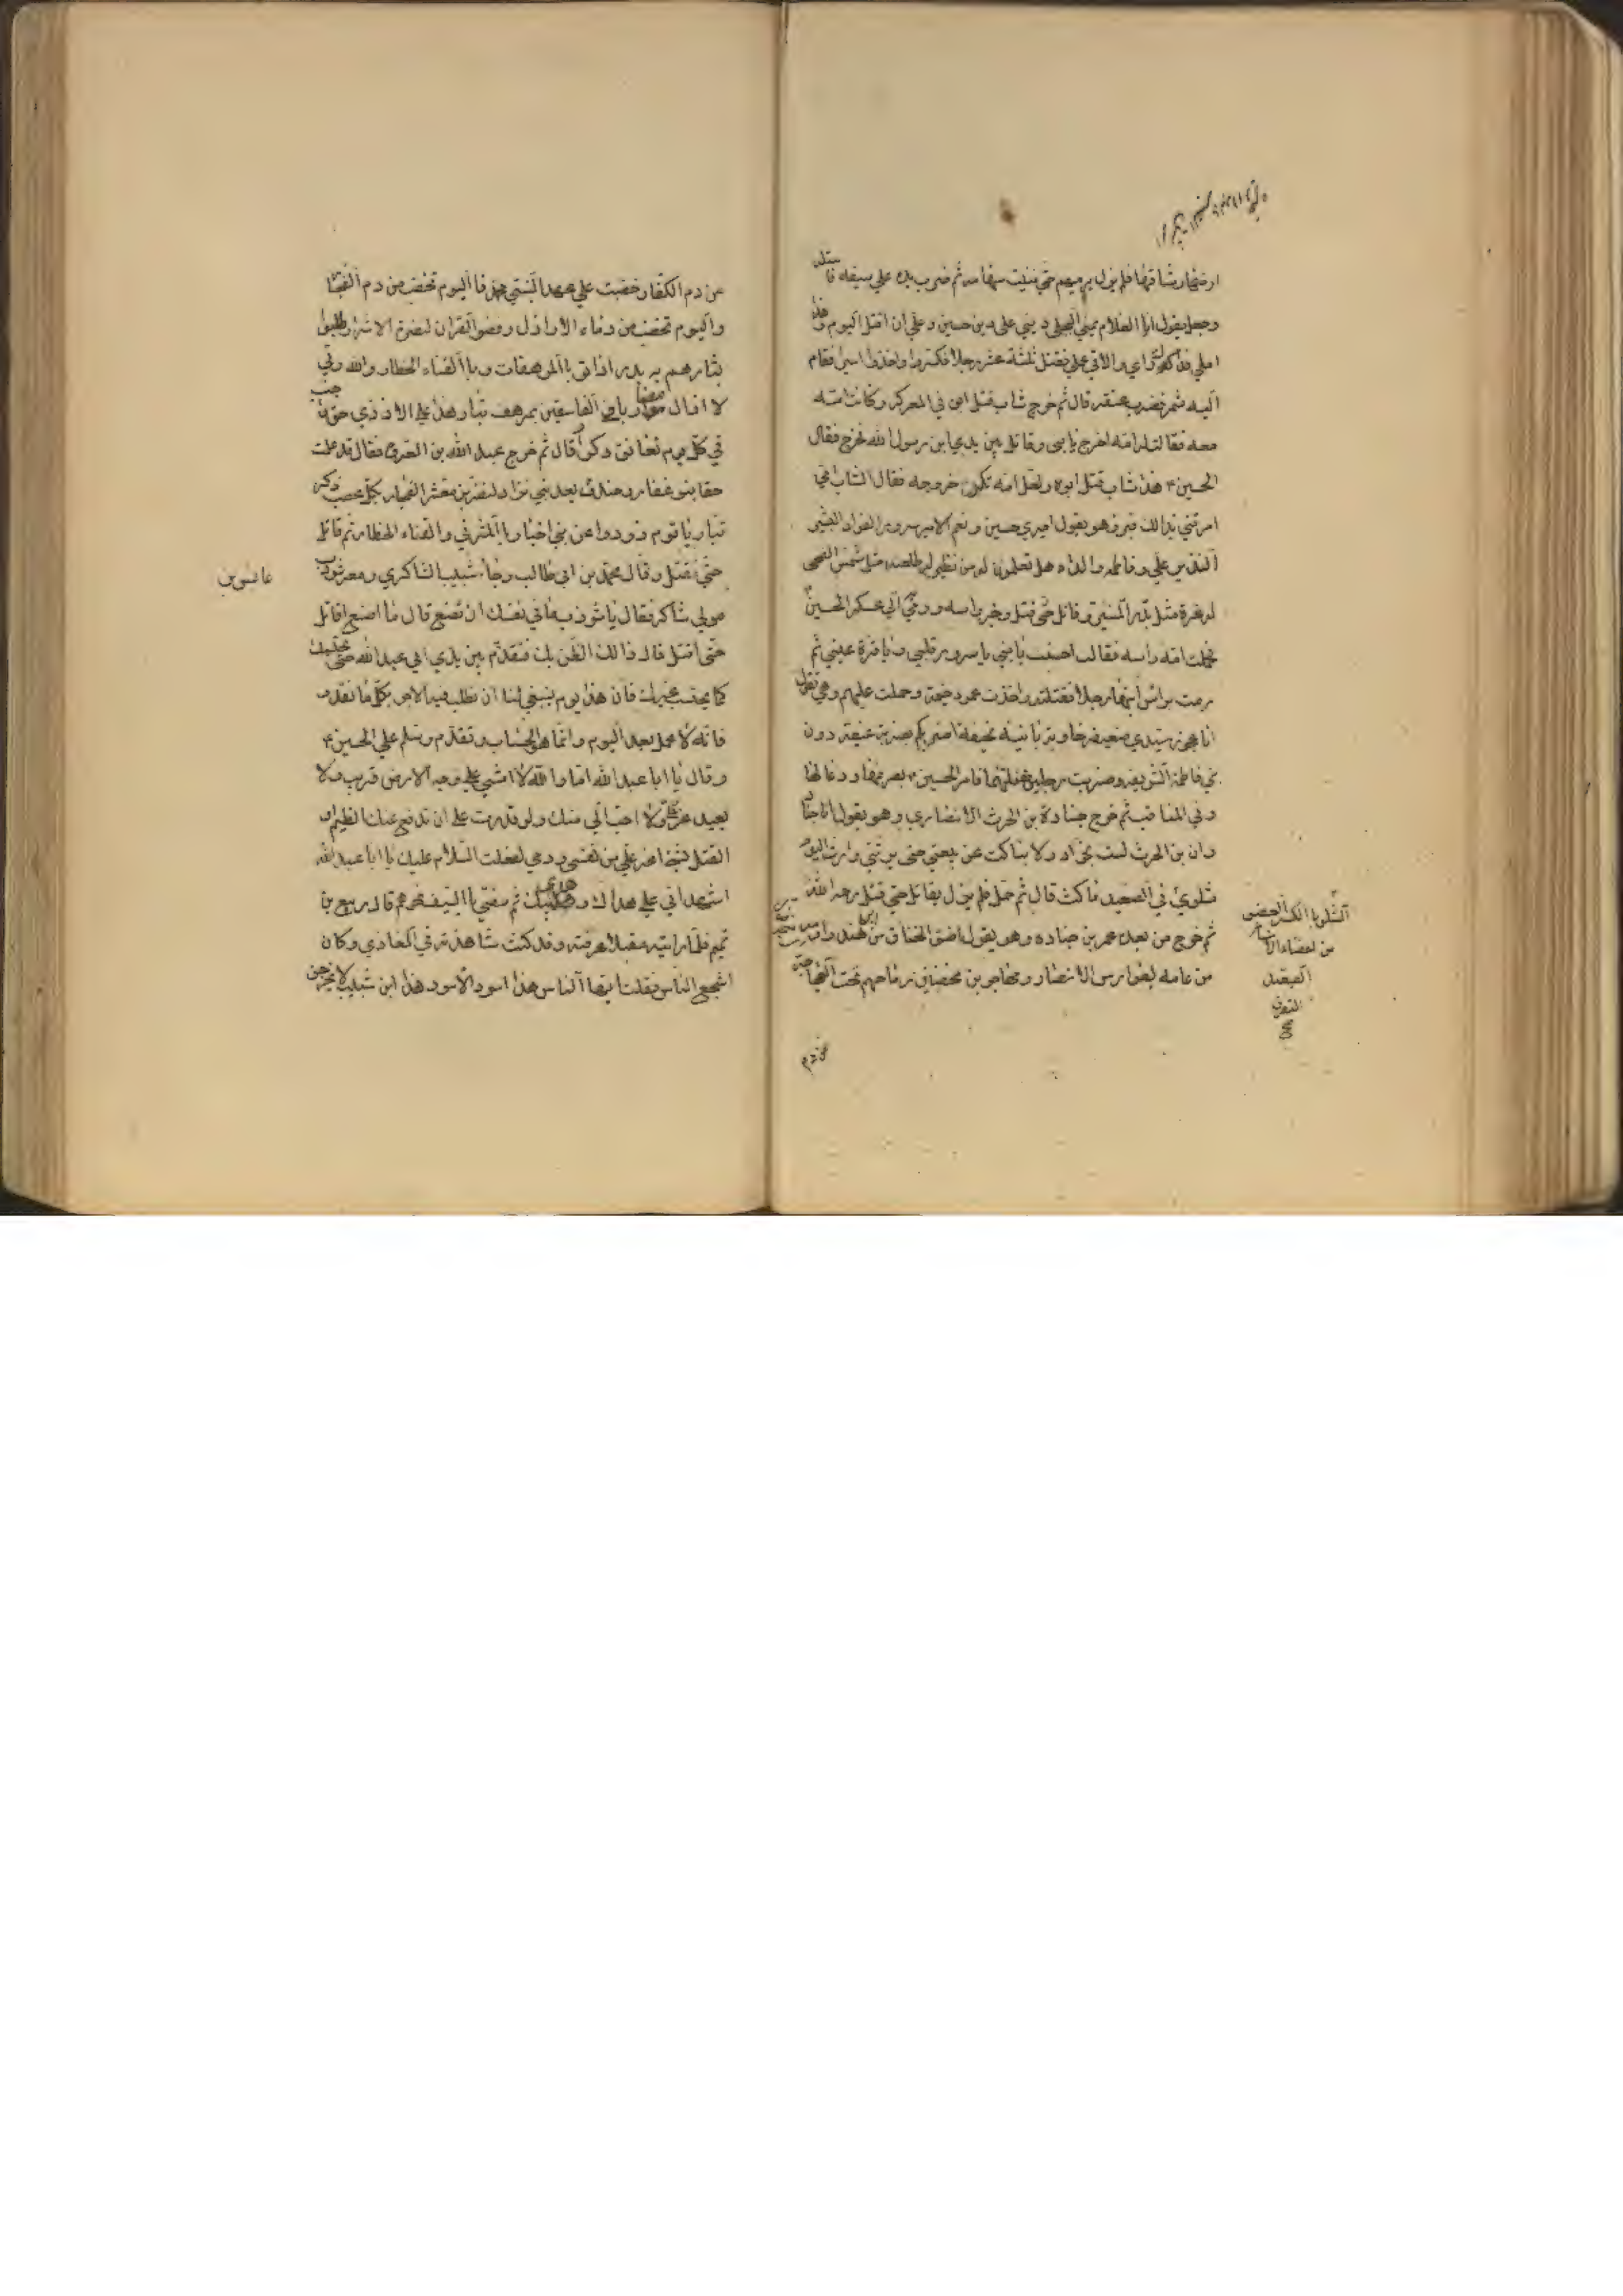 ارضها رشاقها فلم يزل يرميهم حتى فنيت سهامه ثم ضرب يده على سيفه فاستله
وجعل يقول انا الغلام يمني البجلي ديني على دين حسين وعلي ان اقتل اليوم وهذا
املي فذاك رأي والاقي عملي فقتل ثلثة عشر رجلا فكسروا واخذوا اسيرا فقام
اليه شمر فضرب عنقه قال ثم خرج شاب قتل ابوه في المعركة وكانت امه
معه فقالت له امه اخرج يا بني وقاتل بين يدي ابن رسول الله فخرج فقال
الحسين هذا شاب قتل ابوه ولعل امه تكره خروجه فقال الشاب امي
امرتني بذالك فبرز وهو يقول اميري حسين ونعم الامير سرور الفواد البشير
النذير علي وفاطمه والداه هل تعلمون له من نظير له طلعة مثل شمس الضحى
له غرة مثل بدر المنير وقاتل حتى قتل وجز راسه ورمي الى عسكر الحسين
فحملت امه راسه فقالت احسنت يا بني يا سرور قلبي ويا قرة عيني ثم
رمت براس ابنها رجلا فقتلته واخذت عمود خيمة وحملت عليهم وهي تقول
انا عجوز سيدي ضعيفه خاوية بالية نحيفة اضربكم بضربة عنيفة دون
بني فاطمة الشريفه وضربت رجلين فقتلتهما فامر الحسين بصرفها ودعا لها
وفي المناقب ثم خرج جنادة بن الحرث الانصاري وهو يقول انا جناد
وان بن الحرث لست بخوار ولا بناكث عن بيعتي حتى يرثني وارث اليوم
شلوي في الصعيد ماكث قال ثم حمل فلم يزل يقاتل حتى قتل رحمه الله
ثم خرج من بعده عمر بن جناده وهو يقول اضق الخناق من ابن هند وارمه
من عامه بفوارس الانصار ومهاجرين مخضبين رماحهم تحت العجاجة
الشلو بالكسر العضو
من اعضاء الانسان
عن دم الكفار خضبت على عهد النبي محمد فاليوم تخضب من دم الفجار
واليوم تخضب من دماء الاراذل رفضوا القران لنصرة الاشرار طلبوا
بثارهم ببدر اذ اتوا بالمرهفات وبالقناء الخطار والله ربي
لا ازال مضاربا في الفاسقين بمرهف بتار هذا على الازدي حق واجب
في كل يوم تعانق وكر قال ثم خرج عبد الله بن العروة فقال قد علمت
حقا بنو غفار وخندف بعد بني نزار لنضربن معشر الفجار بكل عضب ذكر
بتار يا قوم ذودوا عن بني اخيار بالمشرفي والقناء الخطار ثم قاتل
حتى قتل وقال محمد بن ابي طالب وجاء شبيب الشاكري ومعه شوذب
مولى شاكر فقال يا شوذب ما في نفسك ان تصنع قال ما اصنع اقاتل
حتى اقتل قال ذالك الظن بك فتقدم بين يدي ابي عبد الله حتى يحتسبك
كما يحتسب غيرك فان هذا يوم ينبغي لنا ان نطلب فيه الاجر بكل ما نقدر
فانه لا عمل بعد اليوم وانما هو الحساب وتقدم وسلم على الحسين
وقال يا ابا عبد الله اما والله لا امشي على وجه الارض قريب ولا
بعيد اعز علي ولا احب الي منك ولو قدرت على ان تدفع عنك الظيم او
القتل بشيء اعز علي من نفسي ودمي لفعلت السلام عليك يا ابا عبد الله
اشهد اني على هداك وهدى ابيك ثم مضى بالسيف نحوهم قال ربيع بن
تميم فلما رايته مقبلا عرفته وقد كنت شاهدته في المغازي وكان
اشجع الناس فقلت ايها الناس هذا اسود الاسود هذا ابن شبيب لا يخرجن